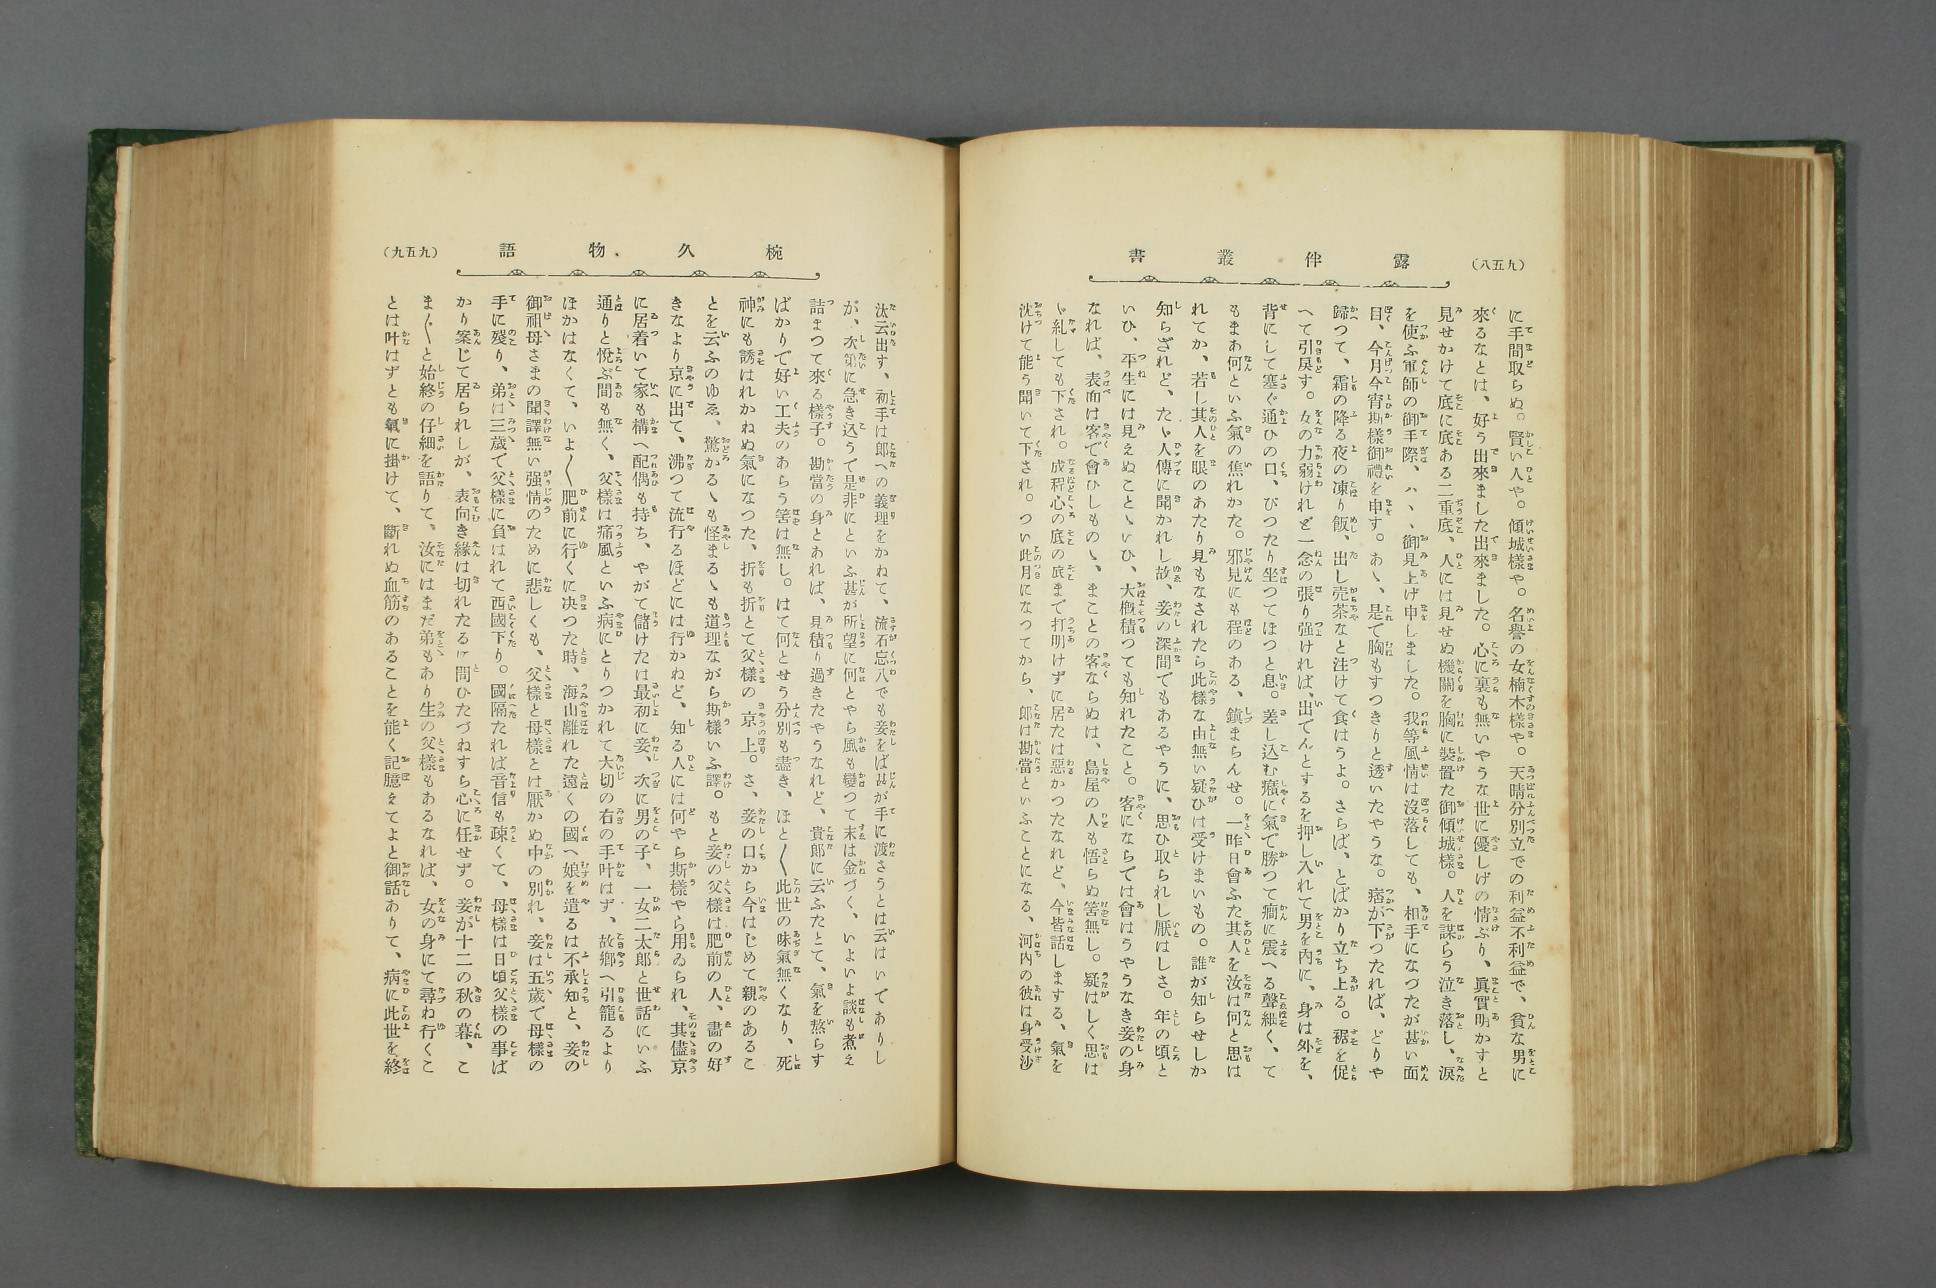 (九五八)
露伴叢書
に手間取らぬ。賢い人や。傾城樣や。名譽の女楠木樣や。天晴分別立での利益不利益で、貧な男に
來るなとは、好う出來ました出來ました。心に裏も無いやうな世に優しげの情ぶり、眞實明かすと
見せかけて底に底ある二重底、人には見せぬ機關を胸に裝置た御傾城樣。人を謀らう泣き落し、涙
を使ふ軍師の御手際、ハヽ、御見上げ申しました。我等風情は沒落しても、相手になつたが甚い面
目、今月今宵斯樣御禮を申す。あゝ、是で胸もすつきりと透いたやうな。痞が下つたれば、どりや
歸つて、霜の降る夜の凍り飯、出し売茶なと注けて食はうよ。さらば、とばかり立ち上る。裾を促
へて引戻す。女の力弱けれど一念の張り強ければ、出でんとするを押し入れて男を內に、身は外を、
背にして塞ぐ通ひの口、ぴつたり坐つてほつと息。差し込む癪に氣で勝つて癎に震へる聲細く、て
もまあ何といふ氣の焦れかた。邪見にも程のある、鎭まらんせ。一昨日會ふた其人を汝は何と思は
れてか、若し其人を眼のあたり見もなされたら此樣な由無い疑ひは受けまいもの。誰が知らせしか
知らざれど、たゞ人傳に聞かれし故、妾の深間でもあるやうに、思ひ取られし厭はしさ。年の頃と
いひ、平生には見えぬことゝいひ、大槪積つても知れたこと。客にならでは會はうやうなき妾の身
なれば、表面は客で會ひしものゝ、まことの客ならぬは、島屋の人も悟らぬ筈無し。疑はしく思は
ゞ糺しても下され。成程心の底の底まで打明けずに居たは惡かつたなれど、今皆話しまする、氣を
沈けて能う聞いて下され。つい此月になつてから、郎は勘當といふことになる、河內の彼は身受沙
椀久物語
(九五九)
汰云出す、初手は郎への義理をかねて、流石忘八でも妾をば甚が手に渡さうとは云はいでありし
が、次第に急き込うで是非にといふ甚が所望に何とやら風も變つて末は金づく、いよいよ談も煮え
詰まつて來る樣子。勘當の身とあれば、見積り過きたやうなれど、貴郎に云ふたとて、氣を熬らす
ばかりで好い工夫のあらう筈は無し。はて何とせう分別も盡き、ほと〱此世の味氣無くなり、死
神にも誘はれかねぬ氣になつた、折も折とて父樣の京上。さ、妾の口から今はじめて親のあるこ
とを云ふのゆゑ、驚かるゝも怪まるゝも道理ながら斯樣いふ譯。もと妾の父樣は肥前の人、畵の好
きなより京に出て、沸つて流行るほどには行かねど、知る人には何やら斯樣やら用ゐられ、其儘京
に居着いて家も構へ配偶も持ち、やがて儲けたは最初に妾、次に男の子、一女二太郎と世話にいふ
通りと悅ぶ間も無く、父樣は痛風といふ病にとりつかれて大切の右の手叶はず、故鄕へ引籠るより
ほかはなくて、いよ〱肥前に行くに决つた時、海山離れた遠くの國へ娘を遣るは不承知と、妾の
御祖母さまの聞譯無い强情のために悲しくも、父樣と母樣とは厭かぬ中の別れ、妾は五歲で母樣の
手に殘り、弟は三歲で父樣に負はれて西國下り。國隔たれば音信も疎くて、母樣は日頃父樣の事ば
かり案じて居られしが、表向き緣は切れたるに問ひたづねすら心に任せず。妾が十二の秋の暮、こ
ま〲と始終の仔細を語りて、汝にはまだ弟もあり生の父樣もあるなれば、女の身にて尋ね行くこ
とは叶はずとも氣に掛けて、斷れぬ血筋のあることを能く記臆えてよと御話ありて、病に此世を終